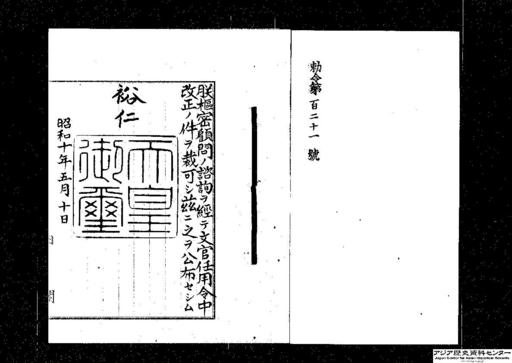 勅令第百二十一號
朕樞密顧問ノ諮詢ヲ經テ文官任用令中
改正ノ件ヲ裁可シ茲ニ之ヲ公布セシム
裕仁
天皇御璽
昭和十年五月十日
アジア歴史資料センター
Japan Center for Asian Historical Records